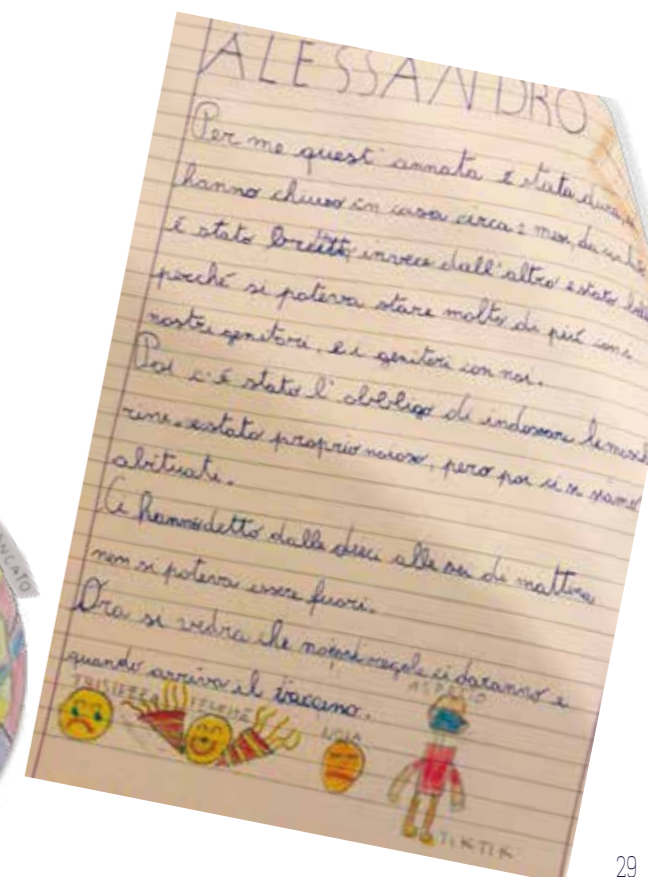 ALESSANDRO
Per me quest'annata è stata dura,
hanno chiuso in casa circa 2 mesi, da un lato
è stato brutto invece dall'altro è stato
perché si poteva stare molto di più con i
nostri genitori, e i genitori con noi.
Poi c'è stato l'obbligo di indossare le masche
rine, è stato proprio noioso, pero poi ci si siamo
abituati.
Ci hanno detto dalle dieci alle sei di mattina
non si poteva essere fuori.
Ora si vedra che regole ci daranno e
quando arriva il vaccino.
TRISTEZZA
NOIA
ASPETTO
TIKTIK
NCATO
29